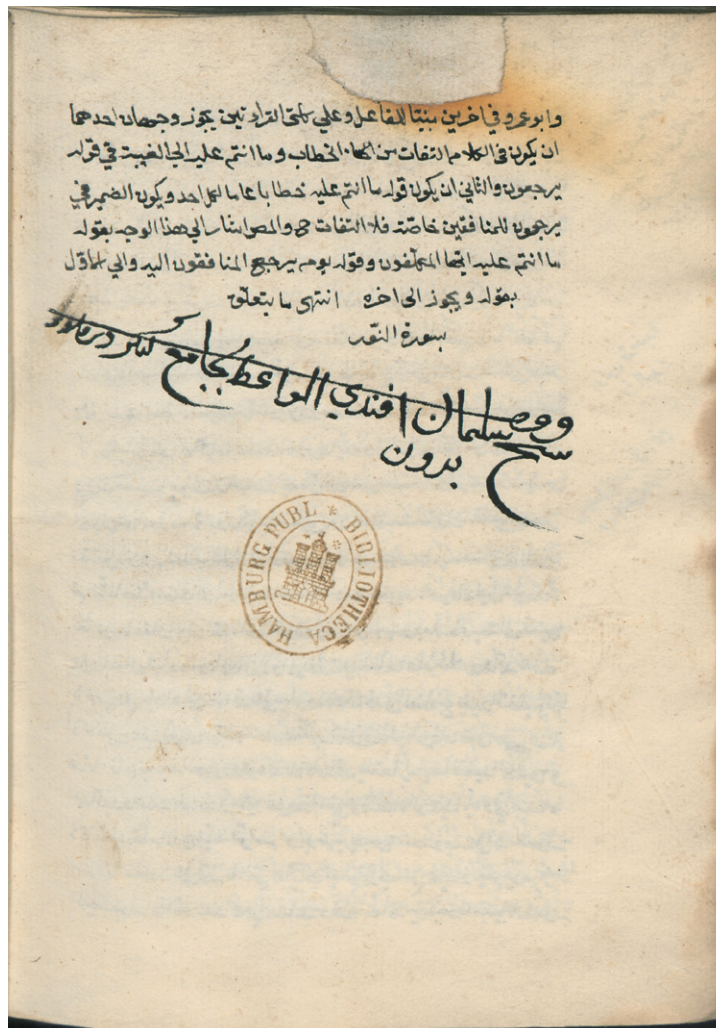 وابو عمرو في اخرين مبنيا للفاعل وعلي كلتى القراءتين يجوز وجهان احدهما
ان يكون في الكلام التفات من الخطاب وما انتم عليه الي الغيبة في قوله
يرجعون والثاني ان يكون قوله ما انتم عليه خطابا عاما لكل احد ويكون الضمير في
يرجعون للمنافقين خاصة فلا التفات ح والمص اشار الي هذا الوجه بقوله
ما انتم عليه ايها المكلفون وقوله يوم يرجع المنافقون اليه والي الاول
بقوله ويجوز الى اخره انتهى ما يتعلق
بسورة النور
وقف سليمان افندي الواعظ بجامع
بدون
HAMBURG PUBL * BIBLIOTHECA *